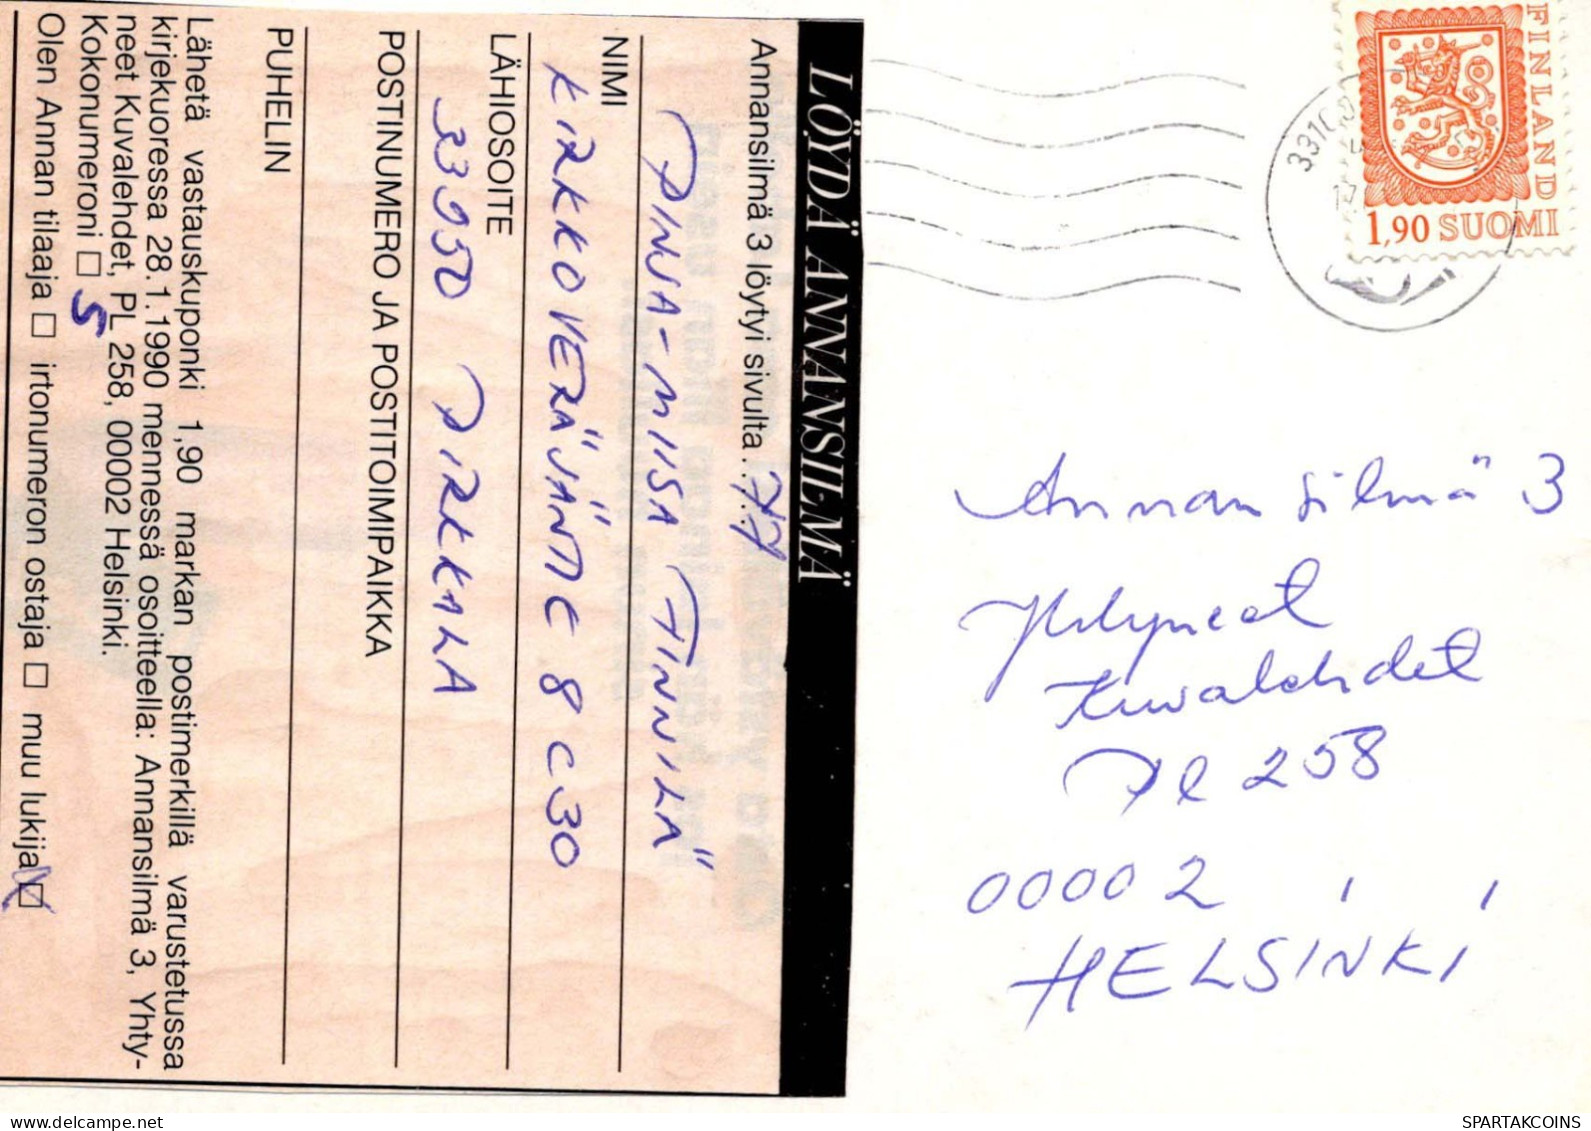 LÖYDÄ ANNANSILMÄ
Annansilmä 3 löytyi sivulta..77
PINJA-MIISA FINNILÄ
NIMI
KIRKKOVERÄJÄNTIE 8 C 30
LÄHIOSOITE
33950 PIRKKALA
POSTINUMERO JA POSTITOIMIPAIKKA
PUHELIN
Lähetä vastauskuponki 1,90 markan postimerkillä varustetussa
kirjekuoressa 28.1.1990 mennessä osoitteella: Annansilmä 3, Yhty-
neet Kuvalehdet, PL 258, 00002 Helsinki.
Kokonumeroni □ 5
Olen Annan tilaaja □ irtonumeron ostaja □ muu lukija □
FINLAND
1,90 SUOMI
Annansilmä 3
Yhtyneet
Kuvalehdet
Pl 258
00002
HELSINKI
SPARTAKCOINS